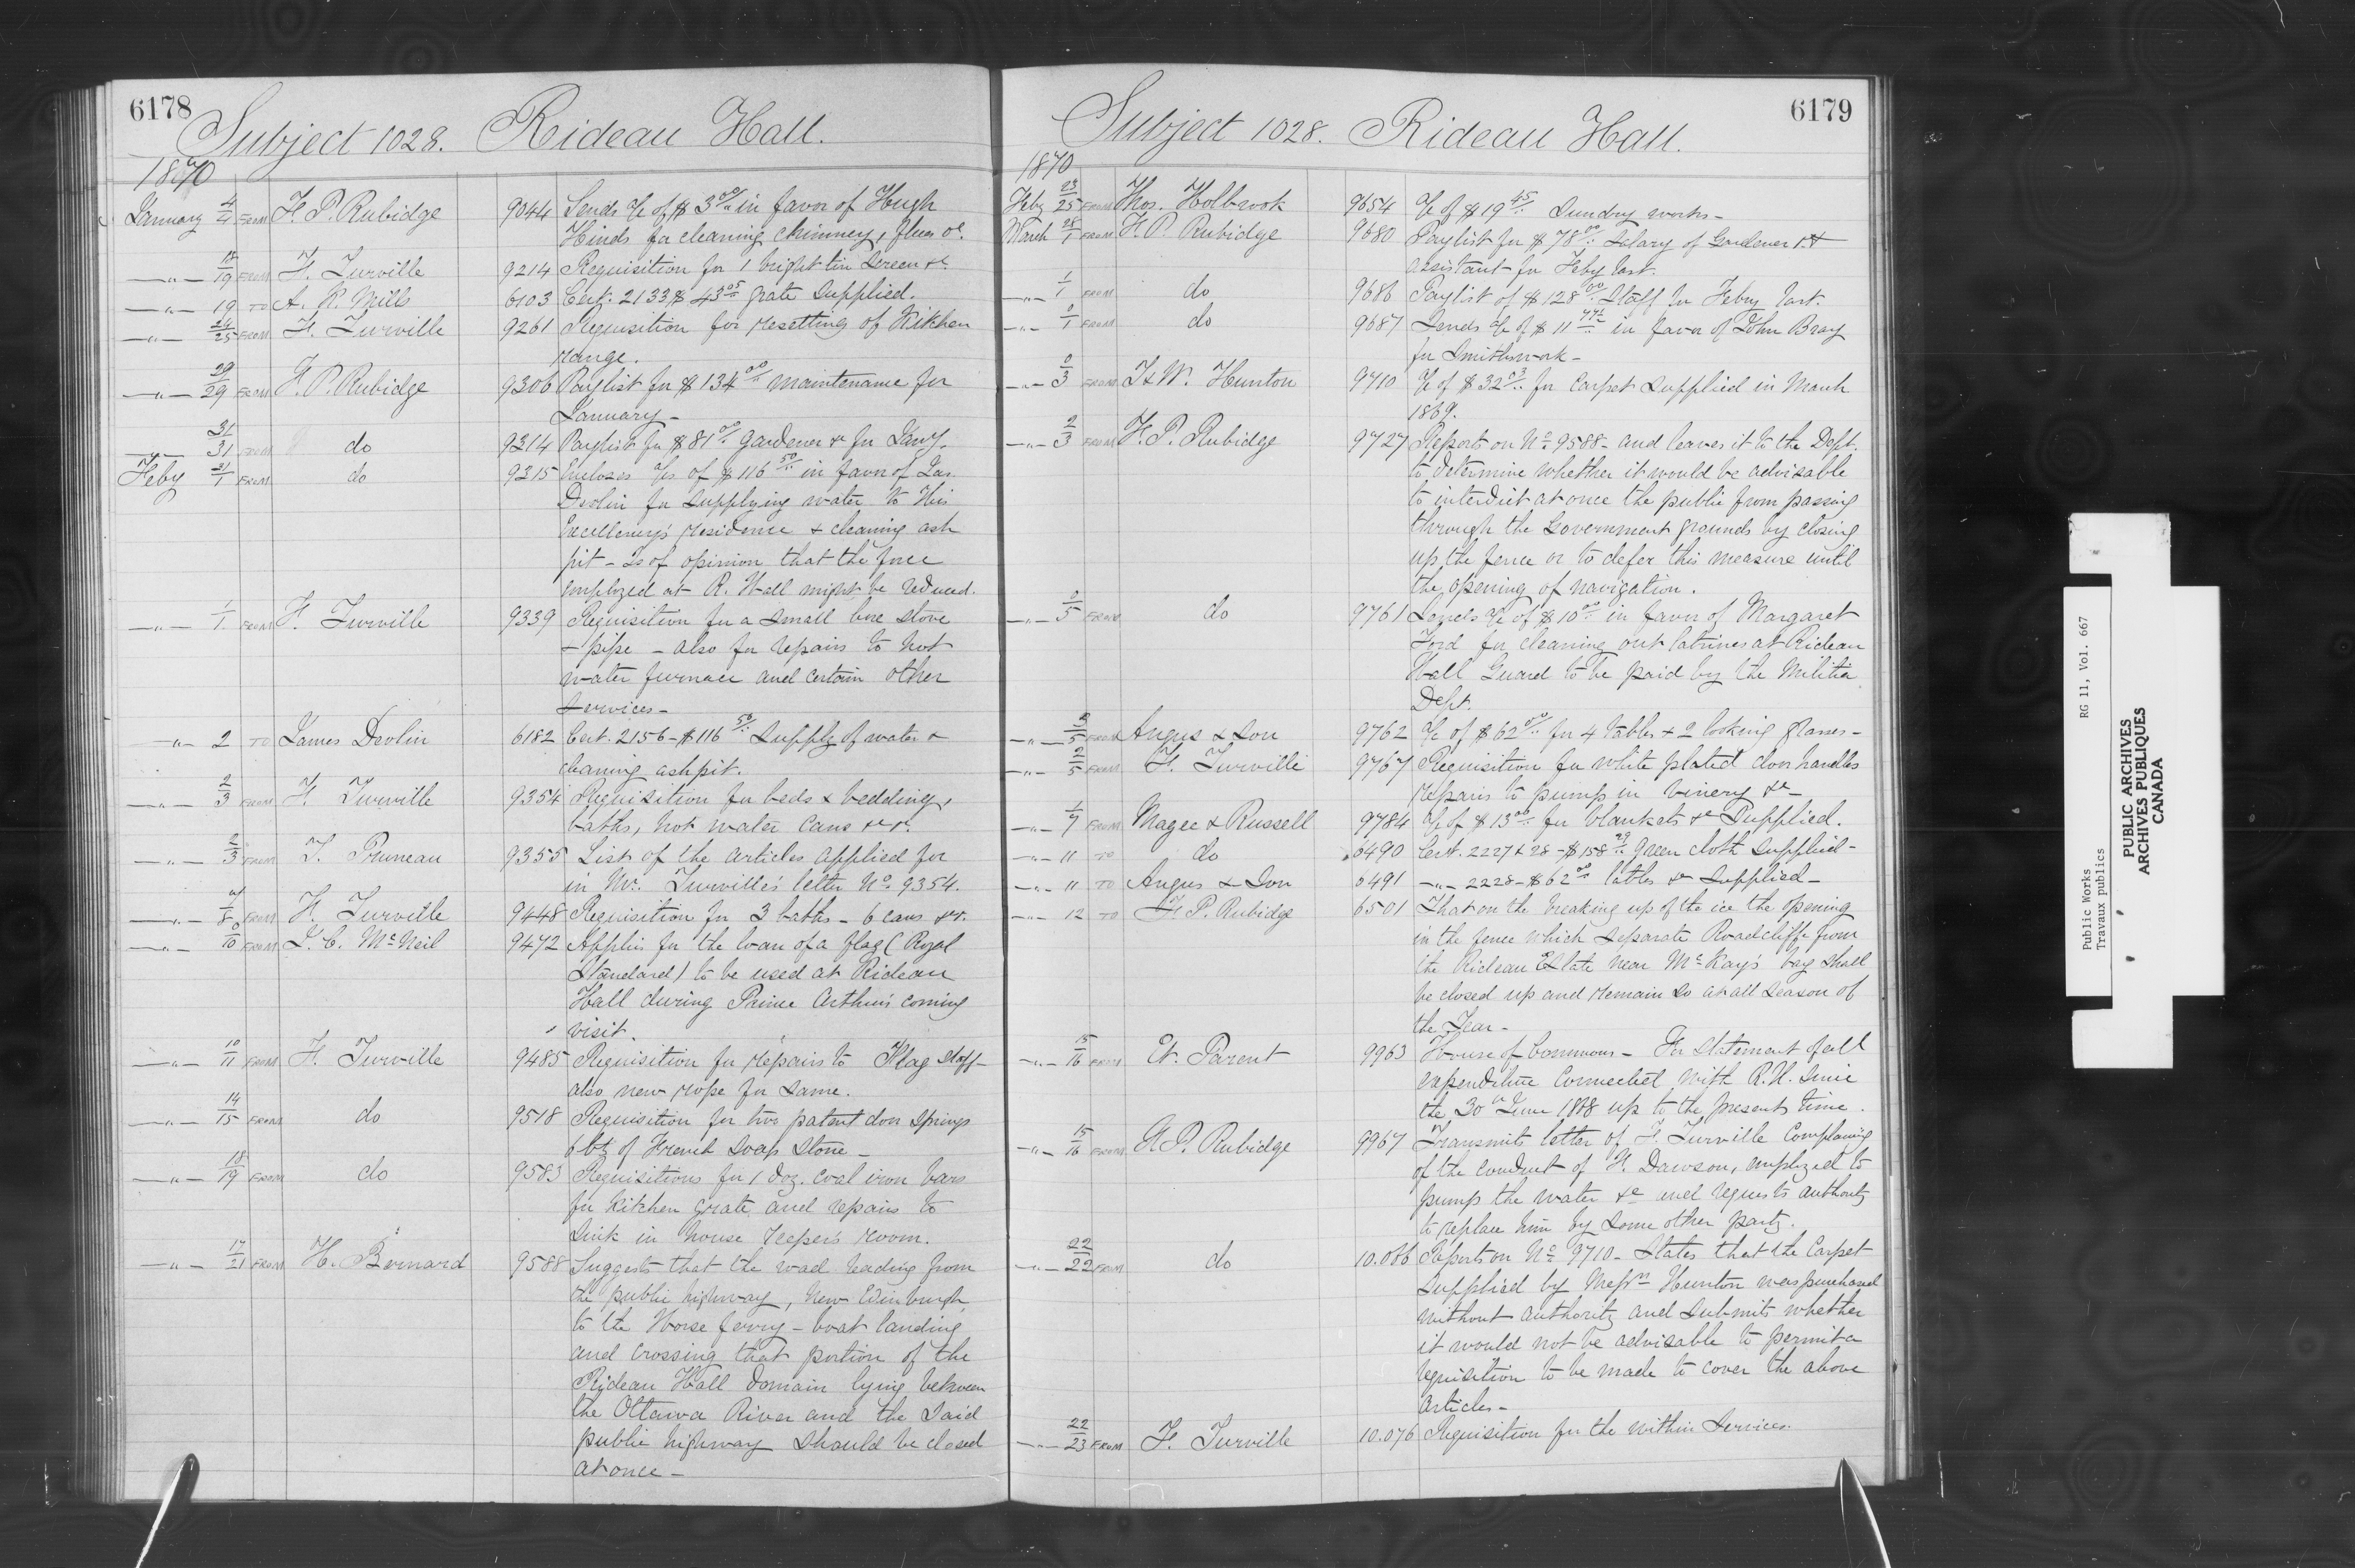 6178
Subject 1028. Rideau Hall.
1870
January 4/4 FROM F. P. Rubidge 9044 Sends a/c of $3.00 in favor of Hugh
Hinds for cleaning chimney, flues &c.
—"— 18/19 FROM F. Turville 9214 Requisition for 1 bright tin screen &c.
—"— 19 TO A. K. Mills 6103 Cert. 2133 $43.05 grate supplied.
—"— 24/25 FROM F. Turville 9261 Requisition for resetting of Kitchen
range.
—"— 29/29 FROM F. P. Rubidge 9306 Paylist for $134.00 maintenance for
January —
—"— 31/31 FROM do 9314 Paylist for $81.00 gardener &c for Jany.
Feby 31/1 FROM do 9315 Encloses a/cs of $116.50 in favor of Jas.
Devlin for supplying water to His
Excellency's residence & cleaning ash
pit — is of opinion that the force
employed at R. Hall might be reduced.
—"— 1/1 FROM F. Turville 9339 Requisition for a small stove
& pipe — also for repairs to hot
water furnace and certain other
services —
—"— 2 TO James Devlin 6182 Cert. 2156 – $116.50 supply of water &
cleaning ashpit.
—"— 2/3 FROM F. Turville 9354 Requisition for beds & bedding,
baths, hot water cans &c &c.
—"— 2/3 FROM T. Pruneau 9355 List of the articles applied for
in Mr. Turville's letter No. 9354.
—"— 8 FROM F. Turville 9448 Requisition for 3 baths – 6 cans &c.
—"— 0/10 FROM J. C. McNeil 9472 Applies for the loan of a flag (Royal
Standard) to be used at Rideau
Hall during Prince Arthur's coming
visit.
—"— 10/11 FROM F. Turville 9485 Requisition for repairs to Flag staff
also new rope for same.
—"— 14/15 FROM do 9518 Requisition for two patent door springs
6 of French Soap Stone —
—"— 18/19 FROM do 9583 Requisitions for 1 doz. coal iron bars
for kitchen grate and repairs to
sink in house Keeper's room.
—"— 17/21 FROM H. Bernard 9588 Suggests that the road leading from
the public highway, New Edinburgh,
to the Horse ferry – boat landing
and crossing that portion of the
Rideau Hall domain lying between
the Ottawa River and the said
public highway should be closed
at once —
6179
Subject 1028. Rideau Hall.
1870
Feby 23/25 FROM Thos. Holbrook 9654 a/c of $19.45 Sundry works —
March 28/1 FROM F. P. Rubidge 9680 Paylist for $78.00 Salary of Gardener &
assistant for Feby last.
—"— 1/1 FROM do 9686 Paylist of $128.00 Staff for Feby last.
—"— 0/1 FROM do 9687 Sends a/c of $11 in favor of John Bray
for smithwork —
—"— 0/3 FROM T & W. Hunton 9710 a/c of $32.03 for carpet supplied in March
1869.
—"— 2/3 FROM F. P. Rubidge 9727 Reports on No. 9588 – and leaves it to the Dept.
to determine whether it would be advisable
to interdict at once the public from passing
through the Government grounds by closing
up the fence or to defer this measure until
the opening of navigation.
—"— 0/5 FROM do 9761 Sends a/c of $10.00 in favor of Margaret
Ford for cleaning out latrines at Rideau
Hall Guard to be paid by the Militia
Dept.
—"— 2/5 FROM Angus & Son 9762 a/c of $62.00 for 4 tables & 2 looking glasses —
—"— 2/5 FROM F. Turville 9767 Requisition for white plated door handles
repairs to pump in vinery &c —
—"— 1/7 FROM Magee & Russell 9784 a/c of $13.00 for blankets &c supplied.
—"— 11 TO do 6490 Cert. 2227 & 28 – $158.29 green cloth supplied —
—"— 11 TO Angus & Son 6491 —"— 2228 – $62.00 tables &c supplied —
—"— 12 TO F. P. Rubidge 6501 That on the breaking up of the ice the opening
in the fence which separate Roadcliffe from
the Rideau Estate near McKay's bay shall
be closed up and remain so at all season of
the Year —
—"— 15/16 FROM Et. Parent 9963 House of Commons – For statement of all
expenditure connected with R. H. since
the 30th June 1868 up to the present time.
—"— 15/16 FROM F. P. Rubidge 9967 Transmits letter of F. Turville complaining
of the conduct of H. Dawson, employed to
pump the water &c and requests authority
to replace him by some other party.
—"— 22/22 FROM do 10.066 Reports on No. 9710 – States that the carpet
supplied by Messrs Hunton was purchased
without authority and submits whether
it would not be advisable to permit a
requisition to be made to cover the above
articles —
—"— 22/23 FROM F. Turville 10.076 Requisition for the within services.
Public Works RG 11, Vol. 667
Travaux publics
PUBLIC ARCHIVES
ARCHIVES PUBLIQUES
CANADA